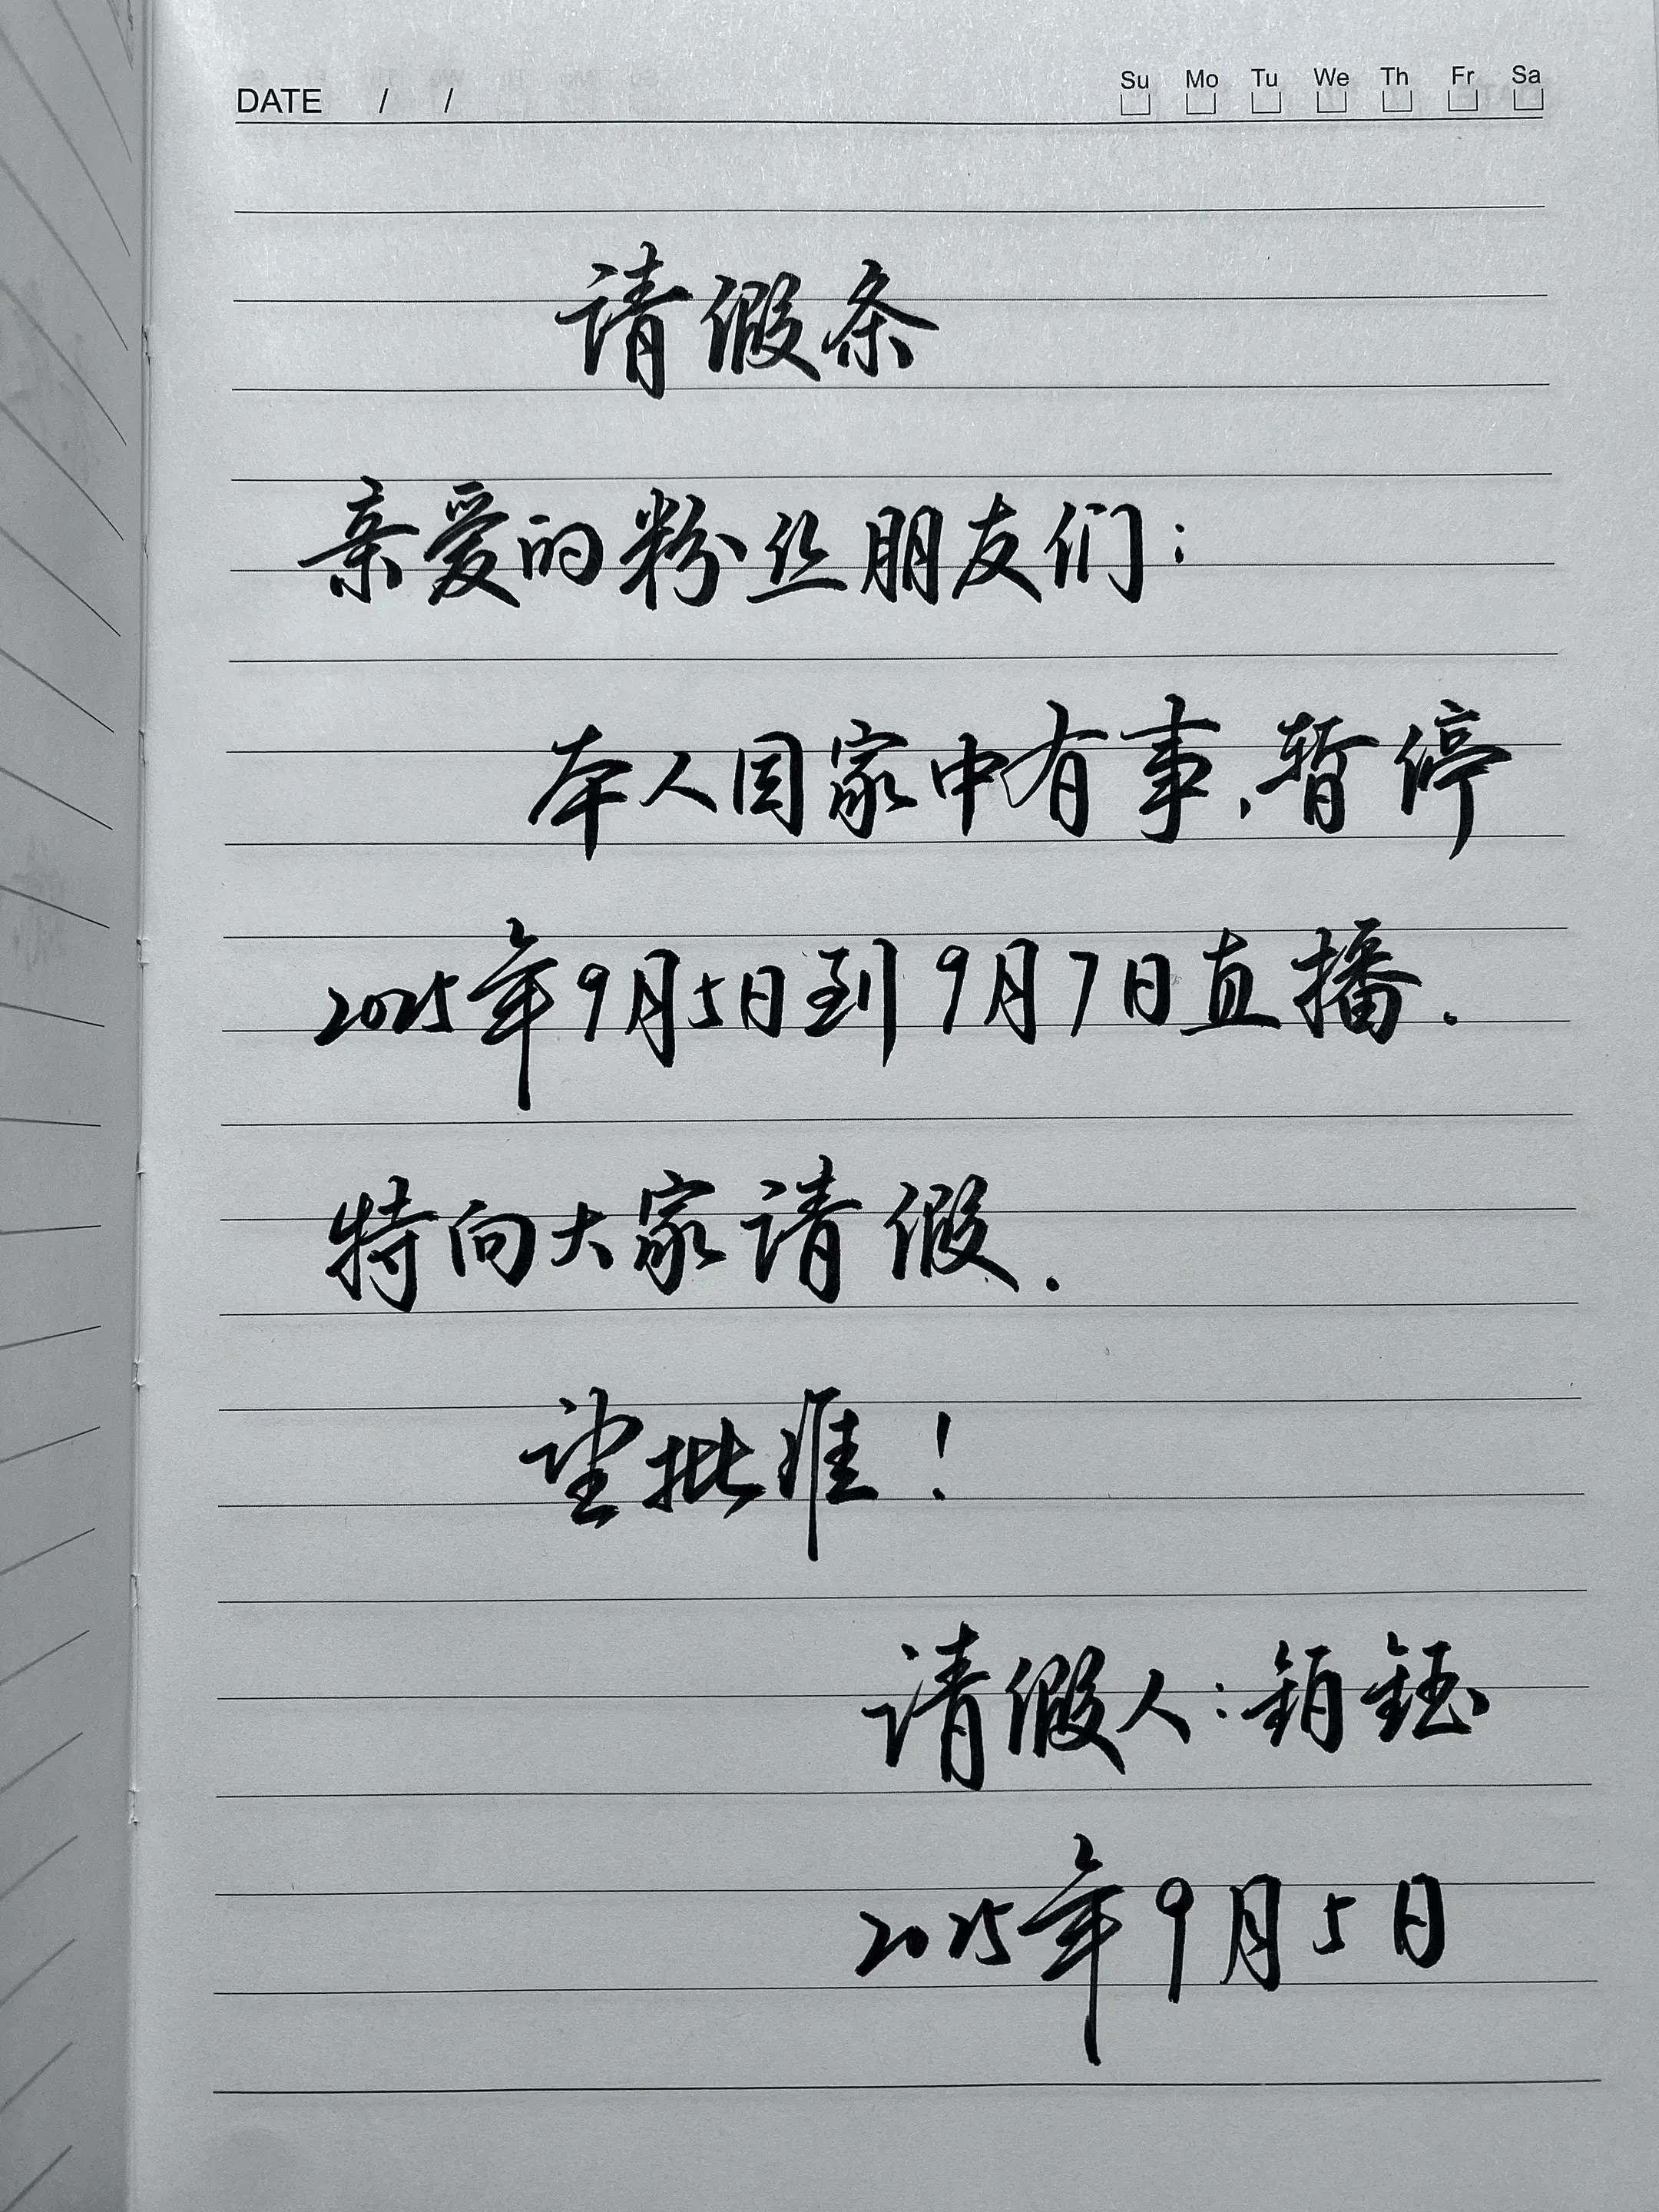 DATE / / Su Mo Tu We Th Fr Sa
请假条
亲爱的粉丝朋友们：
本人因家中有事，暂停
2025年9月5日到9月7日直播.
特向大家请假.
望批准！
请假人：铂钰
2025年9月5日